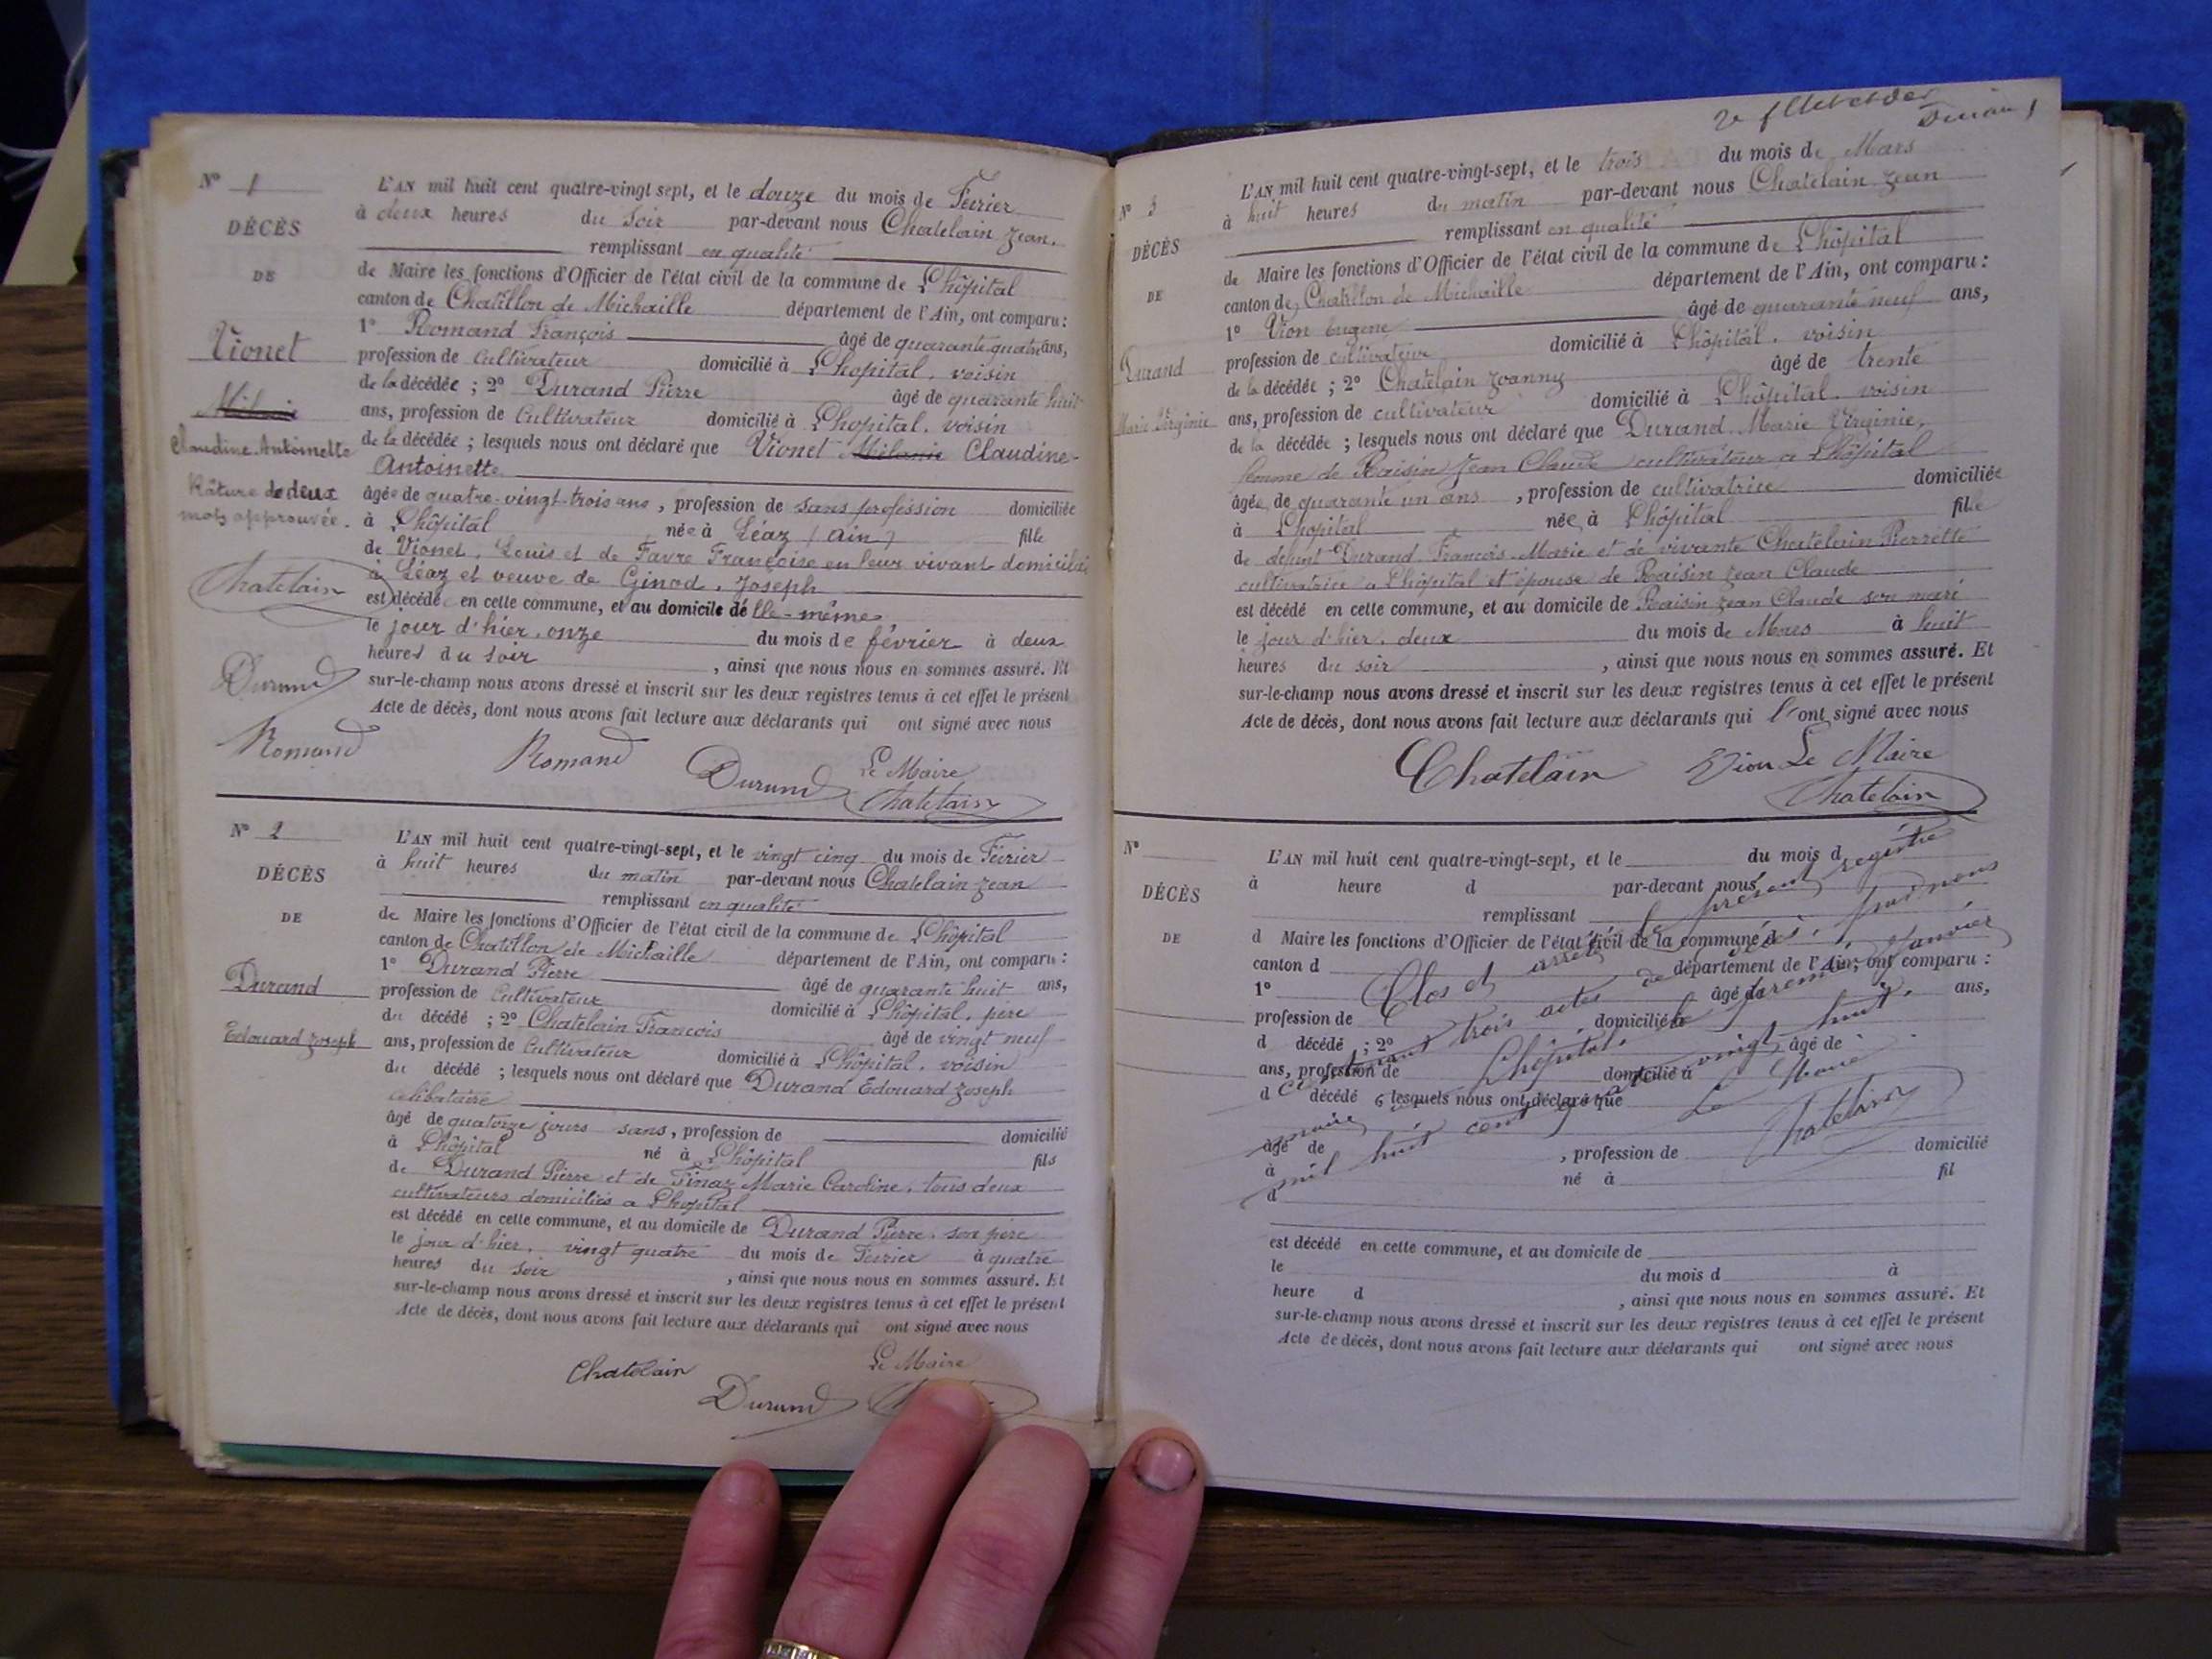 Nº 1
DÉCÈS
DE
Vionet
Mélanie
Claudine-Antoinette
Râture de deux
mots approuvée.
Chatelain
Durand
Romand
L'AN mil huit cent quatre-vingt sept, et le douze du mois de Février
à deux heures du soir par-devant nous Chatelain Jean.
remplissant en qualité
de Maire les fonctions d'Officier de l'état civil de la commune de L'hôpital
canton de Chatillon de Michaille département de l'Ain, ont comparu :
1º Romand François âgé de quarante quatre ans,
profession de Cultivateur domicilié à L'hopital, voisin
de la décédée ; 2º Durand Pierre âgé de quarante huit
ans, profession de Cultivateur domicilié à L'hopital, voisin
de la décédée ; lesquels nous ont déclaré que Vionet Mélanie Claudine-
Antoinette
âgée de quatre-vingt-trois ans, profession de sans profession domiciliée
à L'hôpital née à Léaz (Ain) fille
de Vionet, Louis et de Favre Françoise en leur vivant domiciliés
à Léaz et veuve de Ginod, Joseph
est décédée en cette commune, et au domicile d'elle-même
le jour d'hier, onze du mois de février à deux
heures du soir, ainsi que nous nous en sommes assuré. Et
sur-le-champ nous avons dressé et inscrit sur les deux registres tenus à cet effet le présent
Acte de décès, dont nous avons fait lecture aux déclarants qui ont signé avec nous
Romand Durand Le Maire
Chatelain
Nº 2
DÉCÈS
DE
Durand
Edouard Joseph
L'AN mil huit cent quatre-vingt-sept, et le vingt cinq du mois de Février
à huit heures du matin par-devant nous Chatelain Jean
remplissant en qualité
de Maire les fonctions d'Officier de l'état civil de la commune de L'hôpital
canton de Chatillon de Michaille département de l'Ain, ont comparu :
1º Durand Pierre âgé de quarante huit ans,
profession de Cultivateur domicilié à L'hôpital, père
du décédé ; 2º Chatelain François âgé de vingt neuf
ans, profession de Cultivateur domicilié à L'hôpital, voisin
du décédé ; lesquels nous ont déclaré que Durand Edouard Joseph
célibataire
âgé de quatorze jours sans, profession de domicilié
à L'hôpital né à L'hôpital fils
de Durand Pierre et de Finaz Marie Caroline, tous deux
cultivateurs domiciliés a L'hopital
est décédé en cette commune, et au domicile de Durand Pierre, son père
le jour d'hier, vingt quatre du mois de Février à quatre
heures du soir, ainsi que nous nous en sommes assuré. Et
sur-le-champ nous avons dressé et inscrit sur les deux registres tenus à cet effet le présent
Acte de décès, dont nous avons fait lecture aux déclarants qui ont signé avec nous
Chatelain Durand Le Maire
Nº 3
DÉCÈS
DE
Durand
Marie Virginie
L'AN mil huit cent quatre-vingt-sept, et le trois du mois de Mars
à huit heures du matin par-devant nous Chatelain Jean
remplissant en qualité
de Maire les fonctions d'Officier de l'état civil de la commune de L'hôpital
canton de Chatillon de Michaille département de l'Ain, ont comparu :
1º Vion Eugène âgé de quarante neuf ans,
profession de cultivateur domicilié à L'hôpital, voisin
de la décédée ; 2º Chatelain Joanny âgé de trente
ans, profession de cultivateur domicilié à L'hôpital, voisin
de la décédée ; lesquels nous ont déclaré que Durand Marie Virginie,
femme de Raisin Jean Claude cultivateur a L'hôpital
âgée de quarante un ans, profession de cultivatrice domiciliée
à L'hopital née à L'hôpital fille
de défunt Durand François-Marie et de vivante Chatelain Pierrette
cultivatrice a L'hôpital et épouse de Raisin Jean Claude
est décédé en cette commune, et au domicile de Raisin Jean Claude son mari
le jour d'hier, deux du mois de Mars à huit
heures du soir, ainsi que nous nous en sommes assuré. Et
sur-le-champ nous avons dressé et inscrit sur les deux registres tenus à cet effet le présent
Acte de décès, dont nous avons fait lecture aux déclarants qui l'ont signé avec nous
Chatelain Vion Le Maire
Chatelain
Nº
DÉCÈS
DE
L'AN mil huit cent quatre-vingt-sept, et le du mois d
à heure d par-devant nous
remplissant
d Maire les fonctions d'Officier de l'état civil de la commune d
canton d département de l'Ain, ont comparu :
1º âgé de ans,
profession de domicilié à
d décédé ; 2º âgé de
ans, profession de domicilié à
d décédé ; lesquels nous ont déclaré que
âgé de , profession de domicilié
à né à fil
d
est décédé en cette commune, et au domicile de
le du mois d à
heure d , ainsi que nous nous en sommes assuré. Et
sur-le-champ nous avons dressé et inscrit sur les deux registres tenus à cet effet le présent
Acte de décès, dont nous avons fait lecture aux déclarants qui ont signé avec nous
Clos et arrêté le présent registre
contenant trois actes de décès, par nous
maire L'hôpital, le premier Janvier
mil huit cent quatre vingt huit.
Le Maire
Chatelain